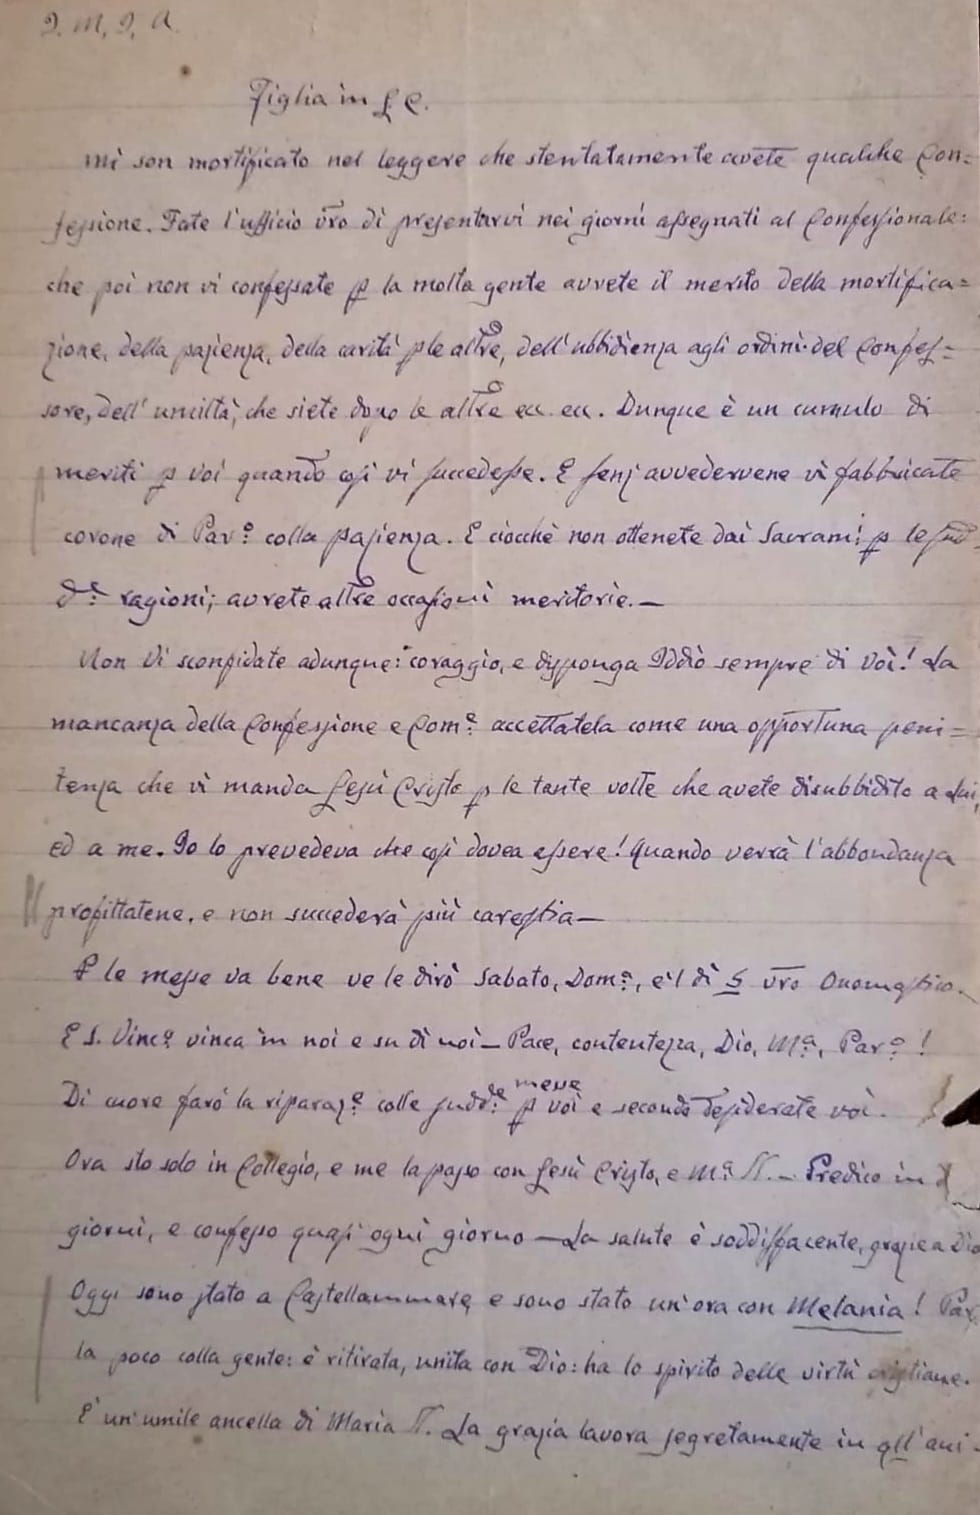 J. M. J. A.
Figlia in G C.
Mi son mortificato nel leggere che stentatamente avete qualche Con=
fessione. Fate l'ufficio vro di presentarvi nei giorni assegnati al Confessionale:
che poi non vi confessate p la molta gente avrete il merito della mortifica=
zione, della pazienza, della carità p le altre, dell'ubbidienza agli ordini del Confes=
sore, dell'umiltà, che siete dopo le altre ecc. ecc. Dunque è un cumulo di
meriti p voi quando così vi succedesse. E senz'avvedervene vi fabbricate
corone di Par.o colla pazienza. E ciocchè non ottenete dai Sacram.i p le sud=
d.e ragioni; avrete altre occasioni meritorie. —
Non vi sconfidate adunque: coraggio, e disponga Iddio sempre di voi! La
mancanza della Confessione e Com.e accettatela come una opportuna peni=
tenza che vi manda Gesù Cristo p le tante volte che avete disubbidito a Lui,
ed a me. Io lo prevedeva che così dovea essere! Quando verrà l'abbondanza
profittatene, e non succederà più carestia —
P le messe va bene ve le dirò Sabato, Dom.a, e'l dì 5 vro Onomastico.
E S. Vinc.o vinca in noi e su di noi — Pace, contentezza, Dio, M.a, Par.o!
Di cuore farò la riparaz.e colle sudd.e messe p voi e secondo desiderate voi.
Ora sto solo in Collegio, e me la passo con Gesù Cristo, e M.a SS. — Predico in
giorni, e confesso quasi ogni giorno — La salute è soddisfacente, grazie a Dio
Oggi sono stato a Castellammare e sono stato un'ora con Melania! Par
la poco colla gente: è ritirata, unita con Dio: ha lo spirito delle virtù cristiane.
E' un'umile ancella di Maria SS. La grazia lavora segretamente in qll'ani=